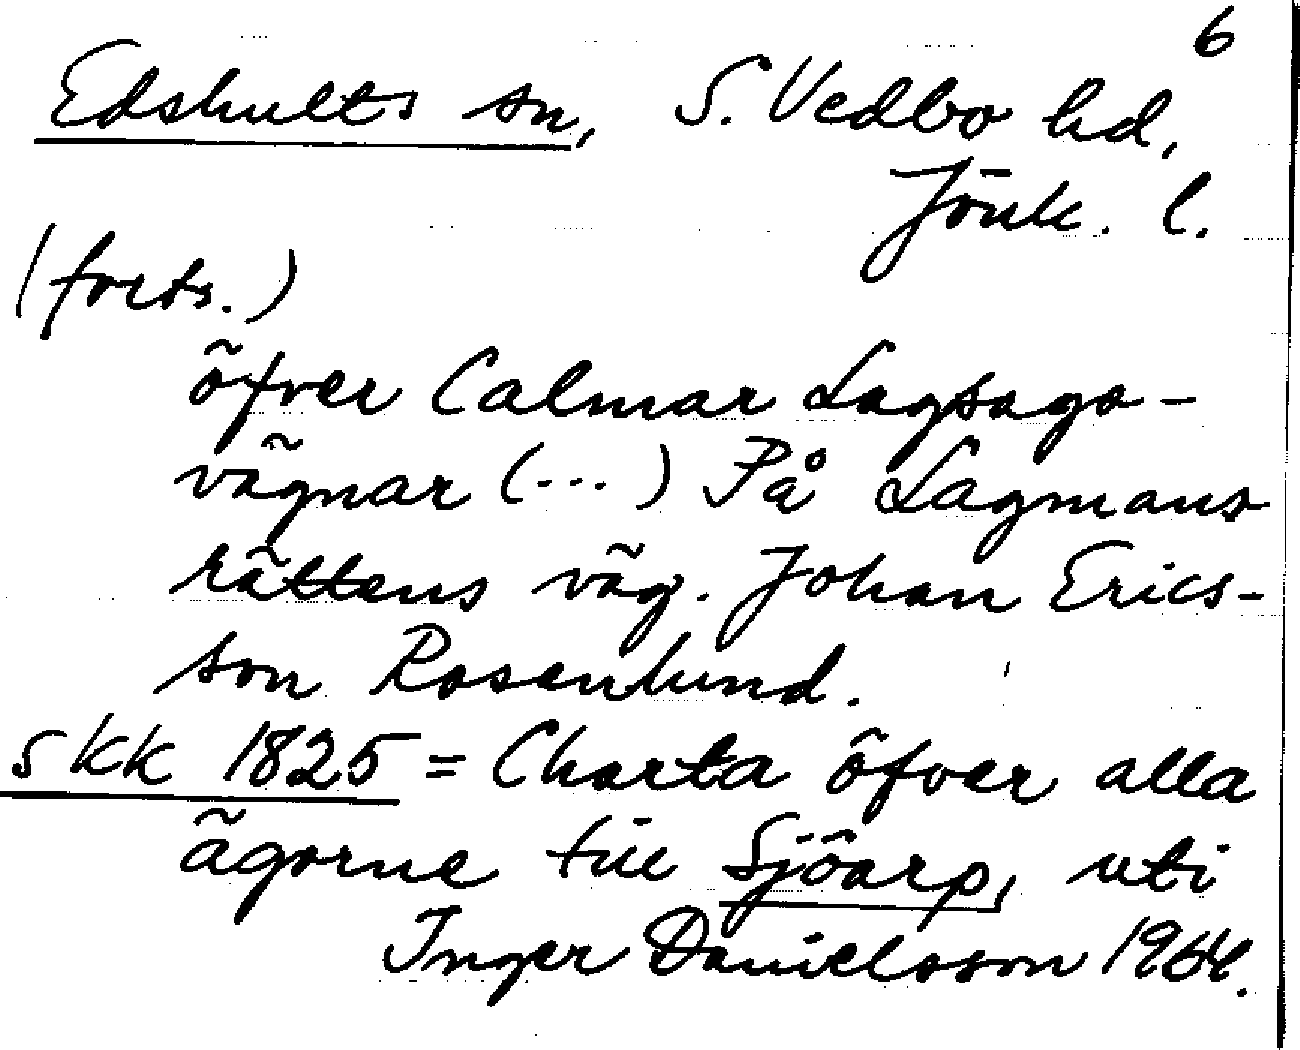 6
Edshults sn, S. Vedbo hd,
Jönk. l.
(forts.)
öfver Calmar Lagsago-
vägnar (...) På Lagmans
rättens väg. Johan Erics-
son Rosenlund.
SKK 1825 = Charta öfver alla
ägorne till Sjöarp, uti
Inger Danielsson 1964.